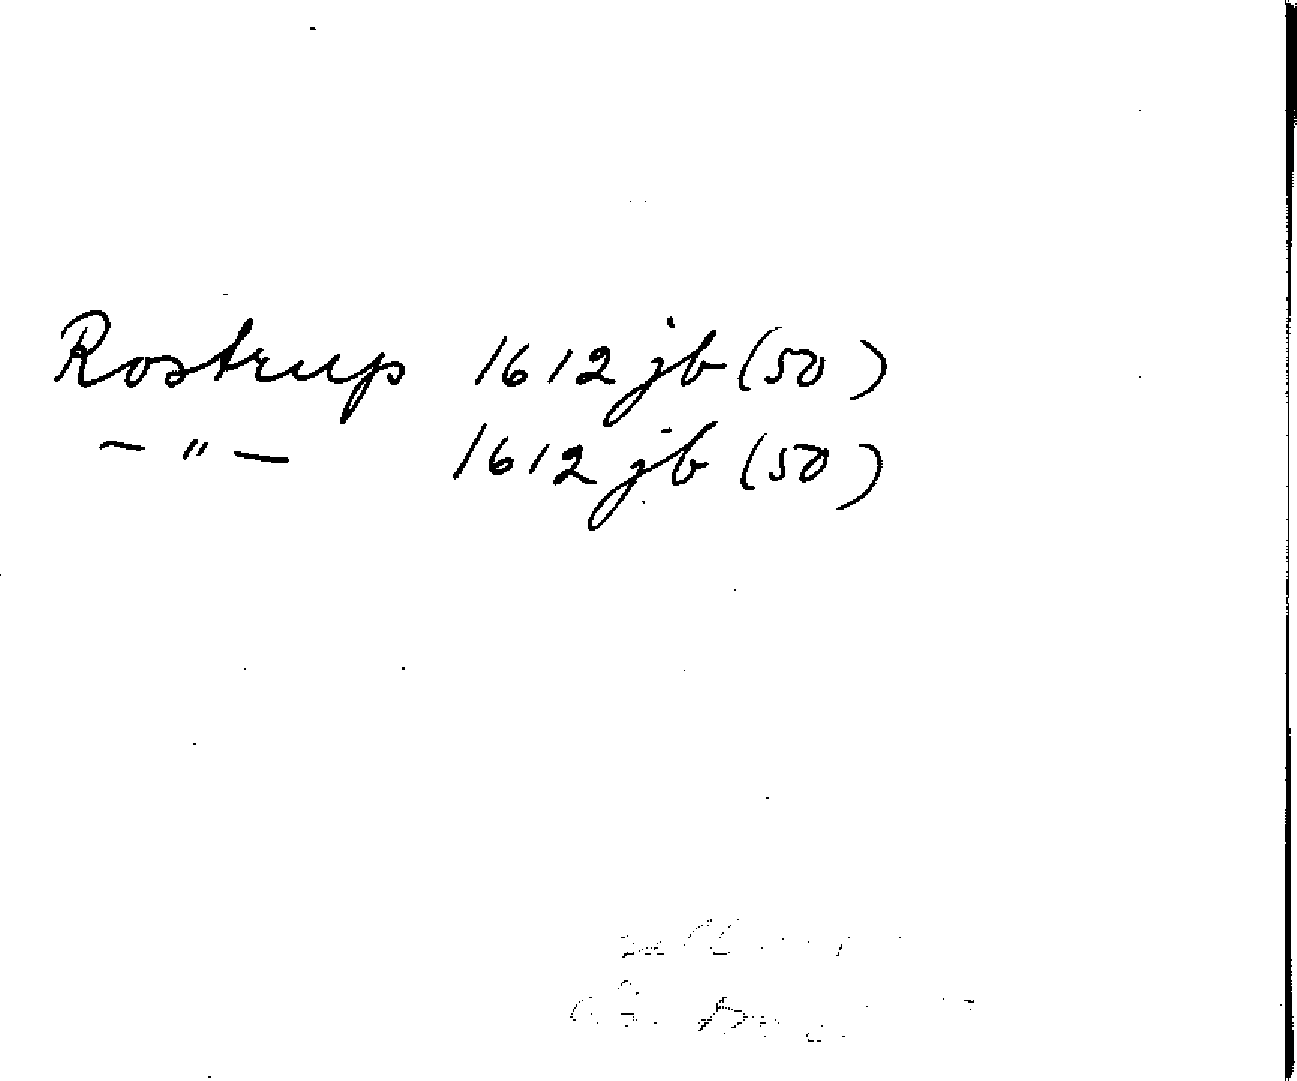 Rostrup 1612 jb (50)
— " — 1612 jb (50)